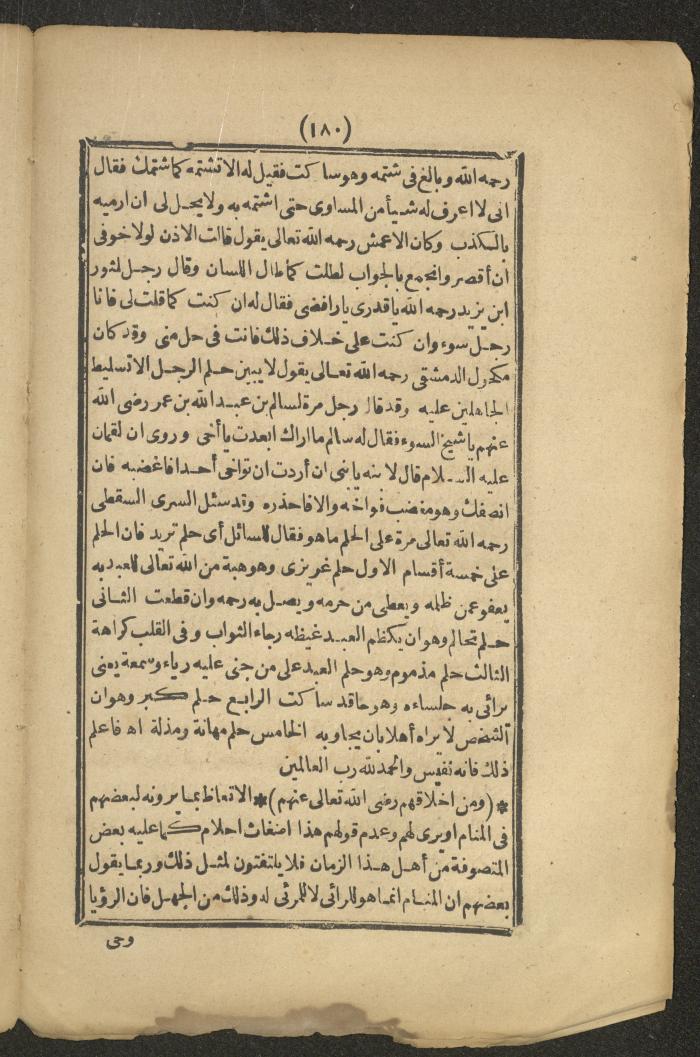 (١٨٠)
رحمه الله وبالغ فى شتمه وهو ساكت فقيل له الا تشتمه كما شتمك فقال
انى لا اعرف له شيأ من المساوى حتى اشتمه به ولا يحل لى ان ارميه
بالكذب وكان الاعمش رحمه الله تعالى يقول قالت الاذن لولا خوفى
ان أقصر وانجمع بالجواب لطلت كما طال اللسان وقال رجل لثور
ابن يزيد رحمه الله ياقدرى يارافضى فقال له ان كنت كما قلت لى فانا
رجل سوء وان كنت على خلاف ذلك فانت فى حل منى وقد كان
مكحول الدمشقى رحمه الله تعالى يقول لا يبين حلم الرجل الا تسليط
الجاهلين عليه وقد قال رجل مرة لسالم بن عبد الله بن عمر رضى الله
عنهم ياشيخ السوء فقال له سالم ما اراك ابعدت يا أخى وروى ان لقمان
عليه السلام قال لابنه يابنى ان أردت ان تواخى أحدا فاغضبه فان
انصفك وهو مغضب فواخه والا فاحذره وقد سئل السرى السقطى
رحمه الله تعالى مرة على الحلم ما هو فقال للسائل أى حلم تريد فان الحلم
على خمسة أقسام الاول حلم غريزى وهو هبة من الله تعالى للعبد به
يعفو عمن ظلمه ويعطى من حرمه ويصل به رحمه وان قطعت الثانى
حلم تحالم وهو ان يكظم العبد غيظه رجاء الثواب وفى القلب كراهة
الثالث حلم مذموم وهو حلم العبد على من جنى عليه رياء وسمعة يعنى
يرائى به جلساءه وهو حاقد ساكت الرابع حلم كبر وهو ان
الشخص لا يراه أهلا بان يجاوبه الخامس حلم مهانة ومذلة اه فاعلم
ذلك فانه نفيس والحمد لله رب العالمين
*(ومن اخلاقهم رضى الله تعالى عنهم)* الاتعاظ بما يرونه لبعضهم
فى المنام اويرى لهم وعدم قولهم هذا اضغاث احلام كما عليه بعض
المتصوفة من أهل هذا الزمان فلا يلتفتون لمثل ذلك وربما يقول
بعضهم ان المنام انما هو للرائى لا للمرئى له وذلك من الجهل فان الرؤيا
وحى